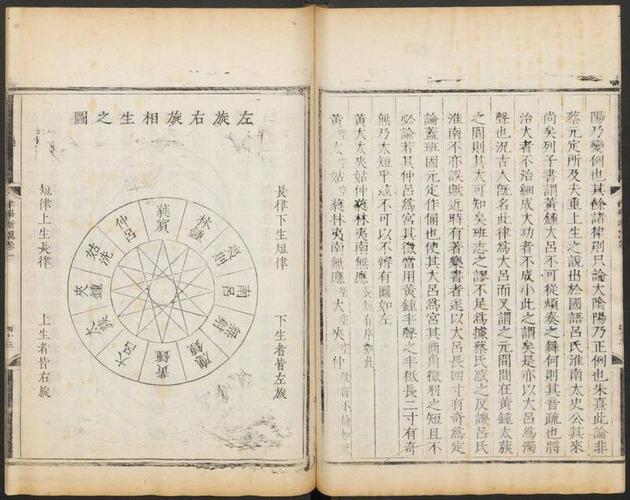 陽乃變例也其餘諸律則只論大陰陽乃正例也朱熹此論非
蔡元定所及夫重上生之說出於國語呂氏淮南太史公其來
尚矣列子書謂黃鍾大呂不可從煩奏之舞何則其音疏也將
治大者不治細成大功者不成小此之謂矣是亦以大呂爲濁
聲也況古人旣名此律爲大呂而又謂之元間間在黃鍾太蔟
之間則其大可知矣班志之謬不足爲據蔡氏惑之反譏呂氏
淮南不亦誤歟近時有著樂書者遂以大呂長四寸有奇爲定
論蓋班固元定作俑也使其大呂爲宮其商角徵羽之短且不
必論若其仲呂爲宮其徵當用黃鍾半聲之半秪長二寸有奇
無乃太短乎遂不可以不辨有圖如左
黃大太夾姑仲蕤林夷南無應
黃太姑蕤林夷南無應大夾仲
左旋右旋相生之圖
長律下生短律
下生者皆左旋
蕤賓
林鍾
夷則
南呂
無射
應鍾
黃鍾
大呂
太蔟
夾鍾
姑洗
仲呂
短律上生長律
上生者皆右旋